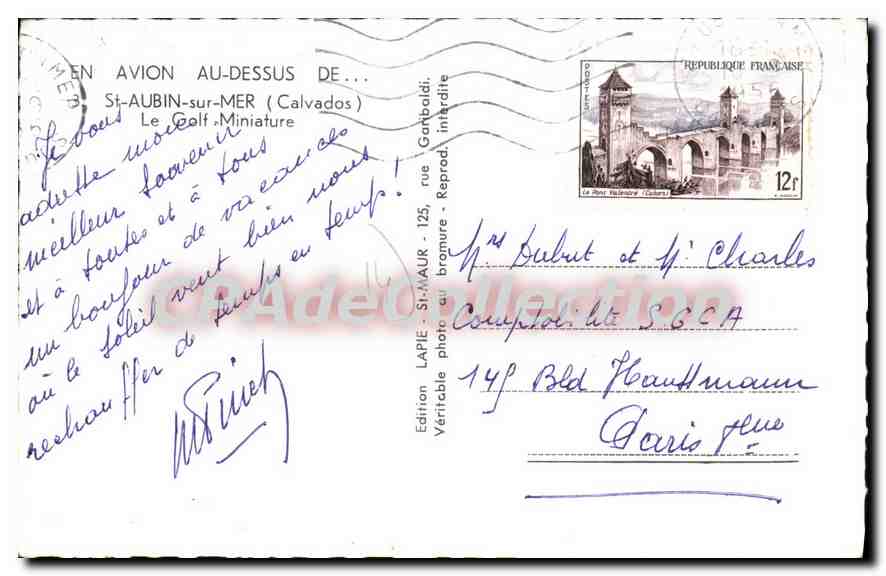 EN AVION AU-DESSUS DE...
St-AUBIN-sur-MER (Calvados)
Le Golf Miniature
Je vous
adresse mon
meilleur souvenir
et à toutes et à tous
un bonjour de vacances
où le soleil veut bien nous
réchauffer de temps en temps!
Edition LAPIE - St-MAUR - 125, rue Garibaldi.
Véritable photo au bromure - Reprod. interdite
POSTES
REPUBLIQUE FRANÇAISE
Le Pont Valentré (Cahors)
12F
Mrs Dubut et Mr Charles
Comptabilité S.G.C.A
149 Bld Haussmann
Paris 8ème
14
CPAdeCollection